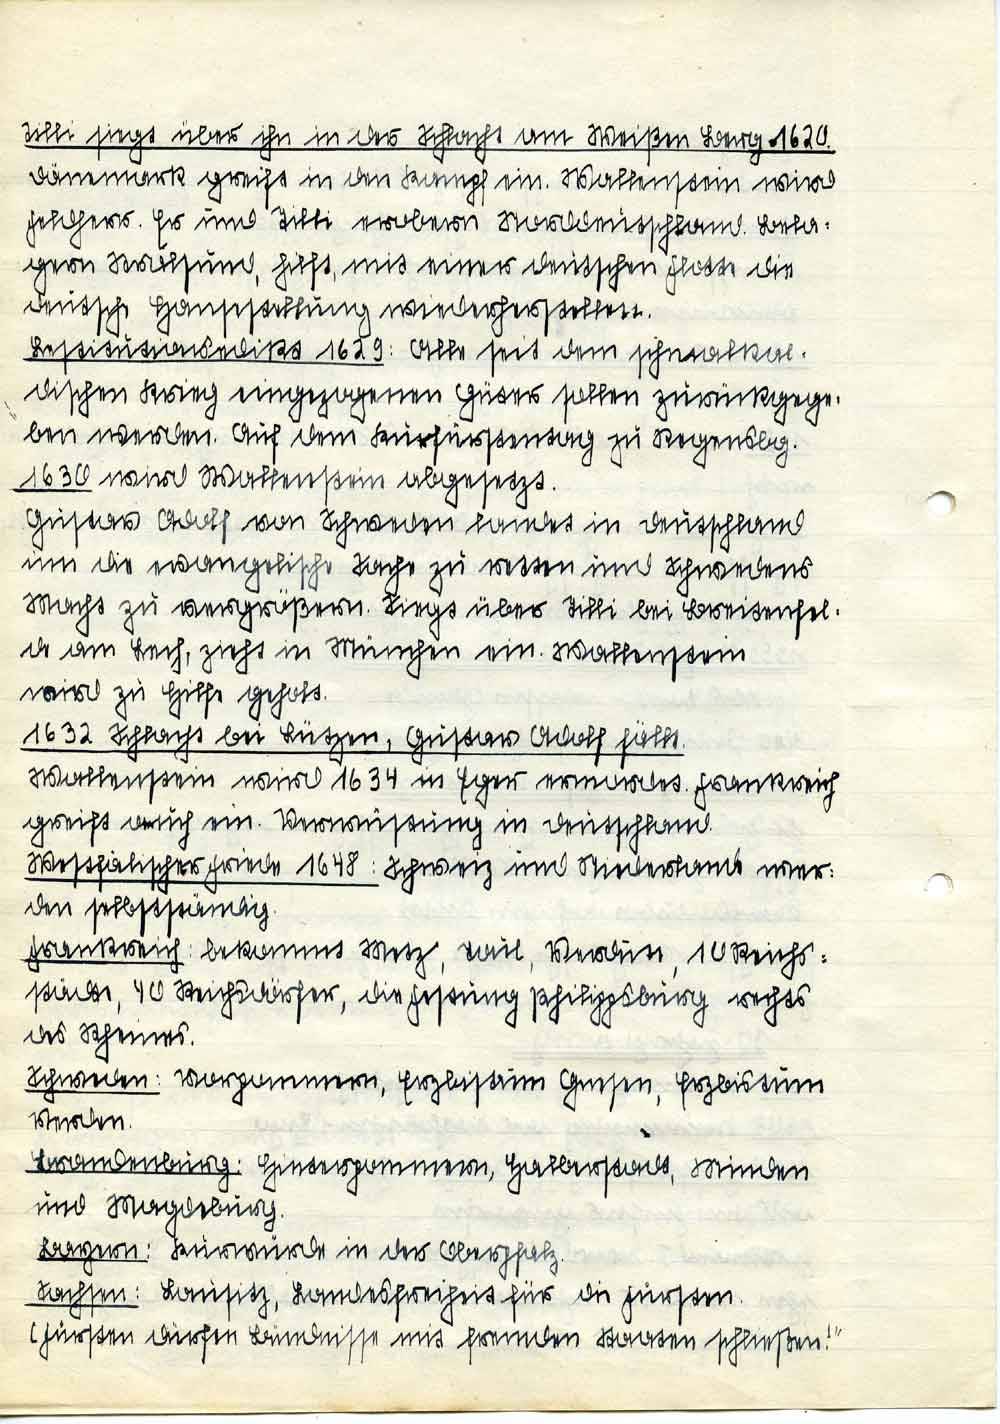 Tilli siegt über ihn in der Schlacht am Weißen Berg 1620.
Dänemark greift in den Kampf ein. Wallenstein wird
Feldherr. Er und Tilli erobern Norddeutschland. Bela-
gern Stralsund, hilft, mit einer deutschen Flotte die
deutsche Hansestellung wiederherstellen.
Restitutionsedikt 1629: Alle seit dem schmalkal-
dischen Krieg eingezogenen Güter sollen zurückgege-
ben werden. Auf dem Kurfürstentag zu Regensbg.
1630 wird Wallenstein abgesetzt.
Gustav Adolf von Schweden landet in Deutschland
um die evangelische Sache zu retten und Schwedens
Macht zu vergrößern. Siegt über Tilli bei Breitenfel-
de am Lech, zieht in München ein. Wallenstein
wird zu Hilfe geholt.
1632 Schlacht bei Lützen, Gustav Adolf fällt.
Wallenstein wird 1634 in Eger ermordet. Frankreich
greift auch ein. Verwüstung in Deutschland.
Westfälischer Friede 1648: Schweiz und Niederlande wer-
den selbstständig.
Frankreich: bekommt Metz, Toul, Verdun, 10 Reichs-
städte, 40 Reichsdörfer, die Festung Philippsburg rechts
des Rheines.
Schweden: Vorpommern, Erzbistum Gnesen, Erzbistum
Verden.
Brandenburg: Hinterpommern, Halberstadt, Minden
und Magdeburg.
Bayern: Kurwürde in der Oberpfalz.
Sachsen: Lausitz, Landesfreiheit für die Fürsten.
(Fürsten dürfen Bündnisse mit fremden Staaten schließen!"